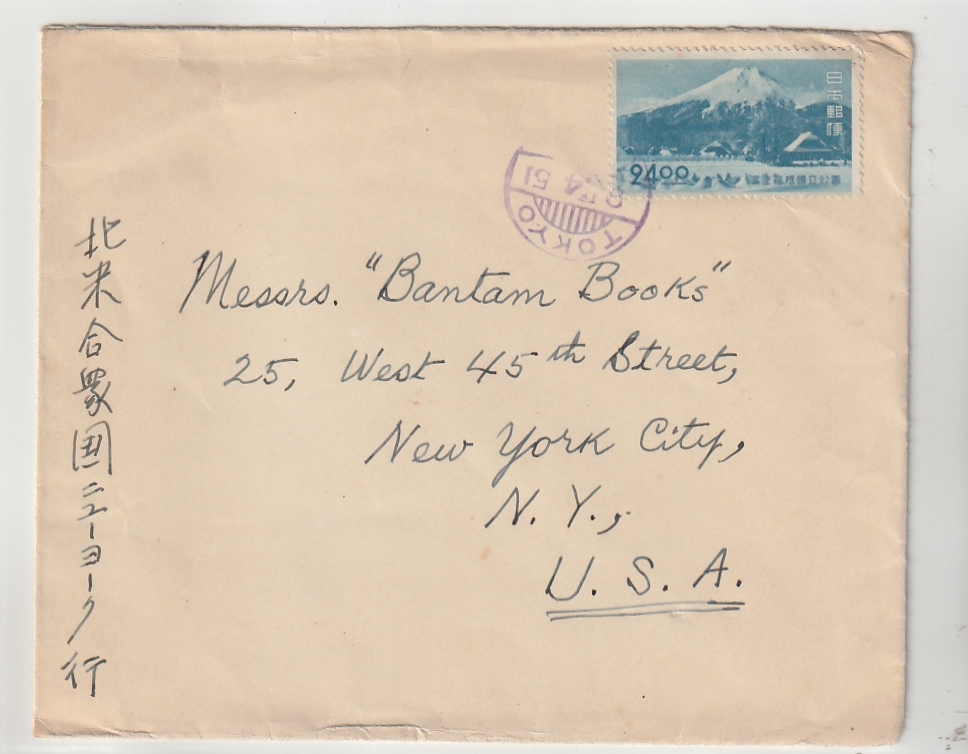 日本郵便
24.00
富士箱根國立公園
TOKYO
4 51
Messrs. "Bantam Books"
25, West 45th Street,
New York City,
N. Y.,
U. S. A.
北米合衆国ニューヨーク行